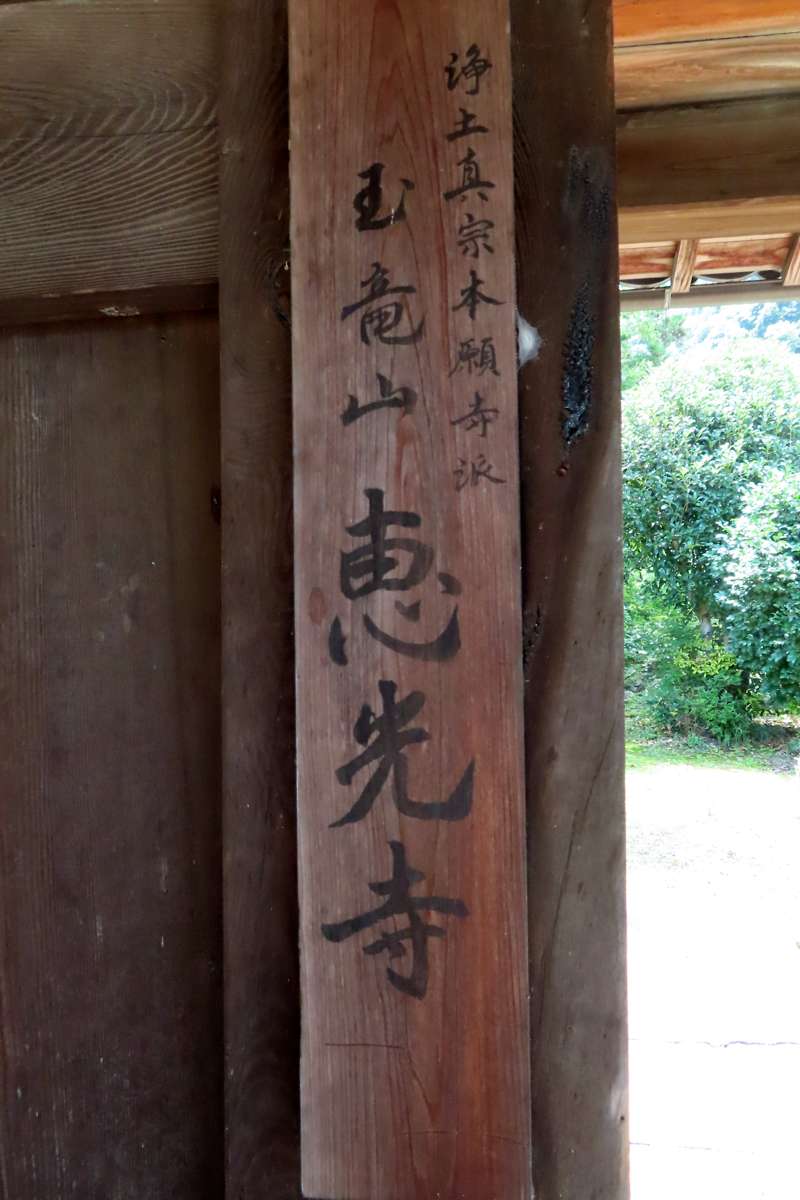 浄土真宗本願寺派
玉竜山恵光寺